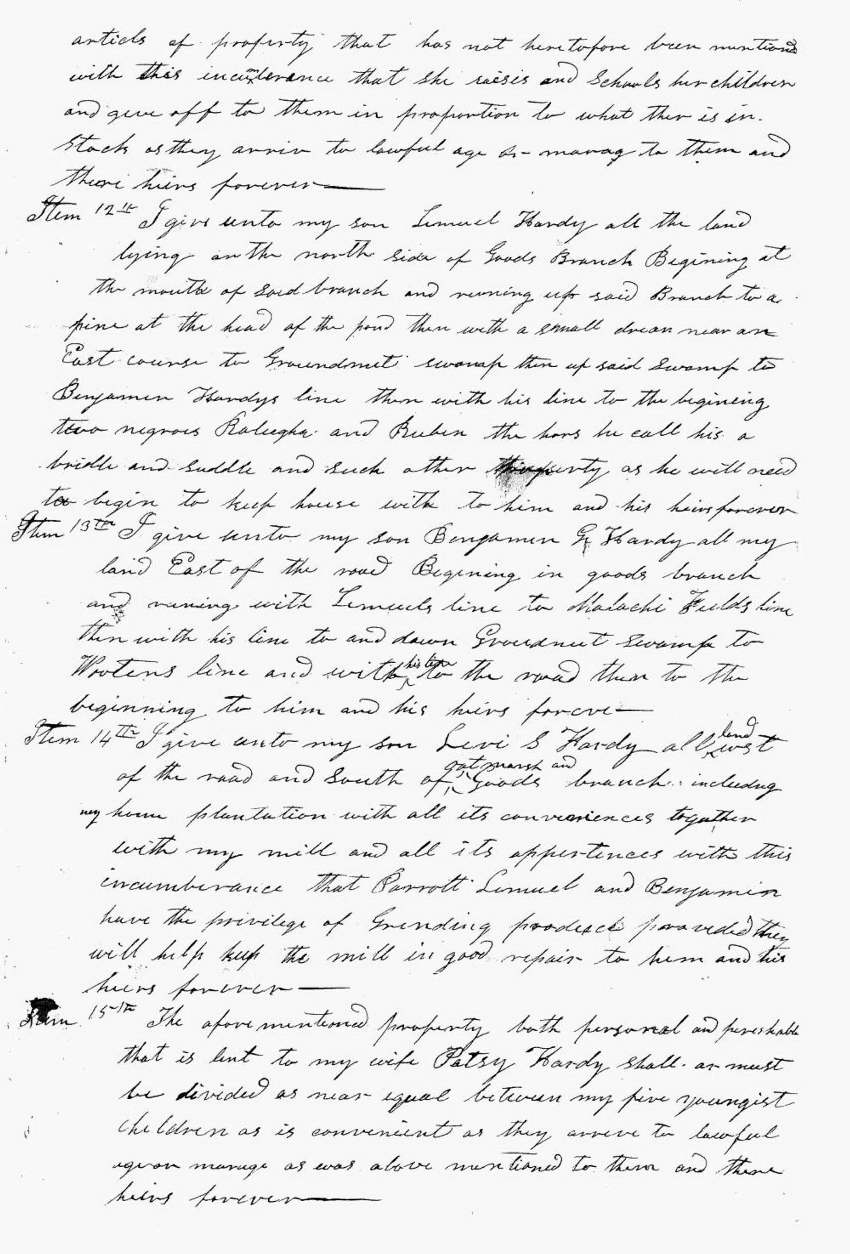 articls of property that has not heretofore been mentiond
with this incumberance that she raisis and Schools her children
and give off to them in proportion to what ther is in
stock as they arriv to lawful age or marrag to them and
there heirs forever
Item 12th I give unto my son Lemuel Hardy all the land
lying on the north side of Goods Branch Begining at
the mouth of said branch and runing up said Branch to a
pine at the head of the pond then with a small drean near an
East course to Groundnut swamp then up said Swamp to
Benjamin Hardys line then with his line to the begining
two negroes Raleigh and Ruben the hors he call his a
bridle and saddle and such other property as he will need
to begin to keep house with to him and his heirs forever
Item 13th I give unto my son Benjamin G Hardy all my
land East of the road Begining in goods branch
and runing with Lemuels line to Malachi Fields line
then with his line to and down Groundnut Swamp to
Wootens line and with his line to the road then to the
beginning to him and his heirs foreve
Item 14th I give unto my son Levi S Hardy all land west
of the road and South of gat marsh and Goods branch includung
my home plantation with all its conveniences togather
with my mill and all its appertences with this
incumberance that Parrott Lemuel and Benjamin
have the privilege of Grending provided they
will help keep the mill in good repair to hem and his
heirs forever
Item 15th The afore mentioned property both personal and pereshable
that is lent to my wife Patsy Hardy shall or must
be divided as near equal between my five youngist
children as is convenient as they arreve to lawful
age or marrage as was above mentioned to them and there
heirs forever